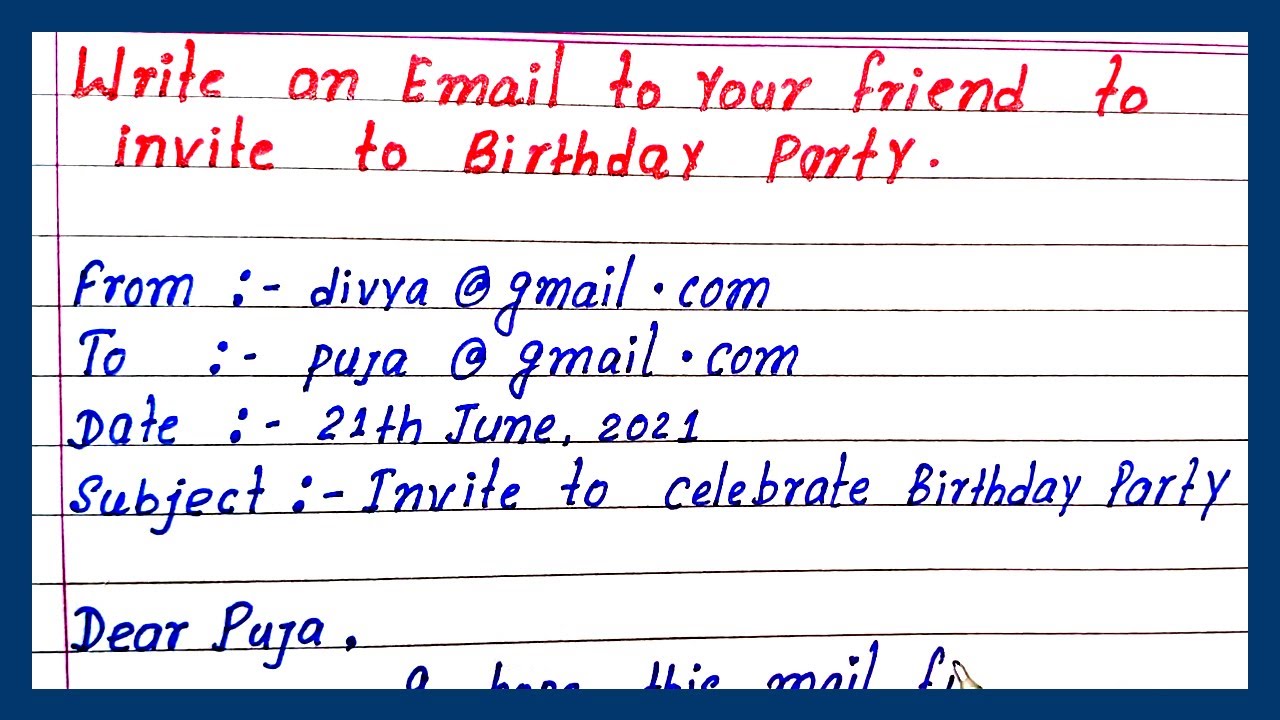 Write an Email to Your friend to
invite to Birthday Party.
From :- divya @ gmail . com
To :- puja @ gmail . com
Date :- 21th June, 2021
Subject :- Invite to celebrate Birthday Party
Dear Puja,
hope this mail